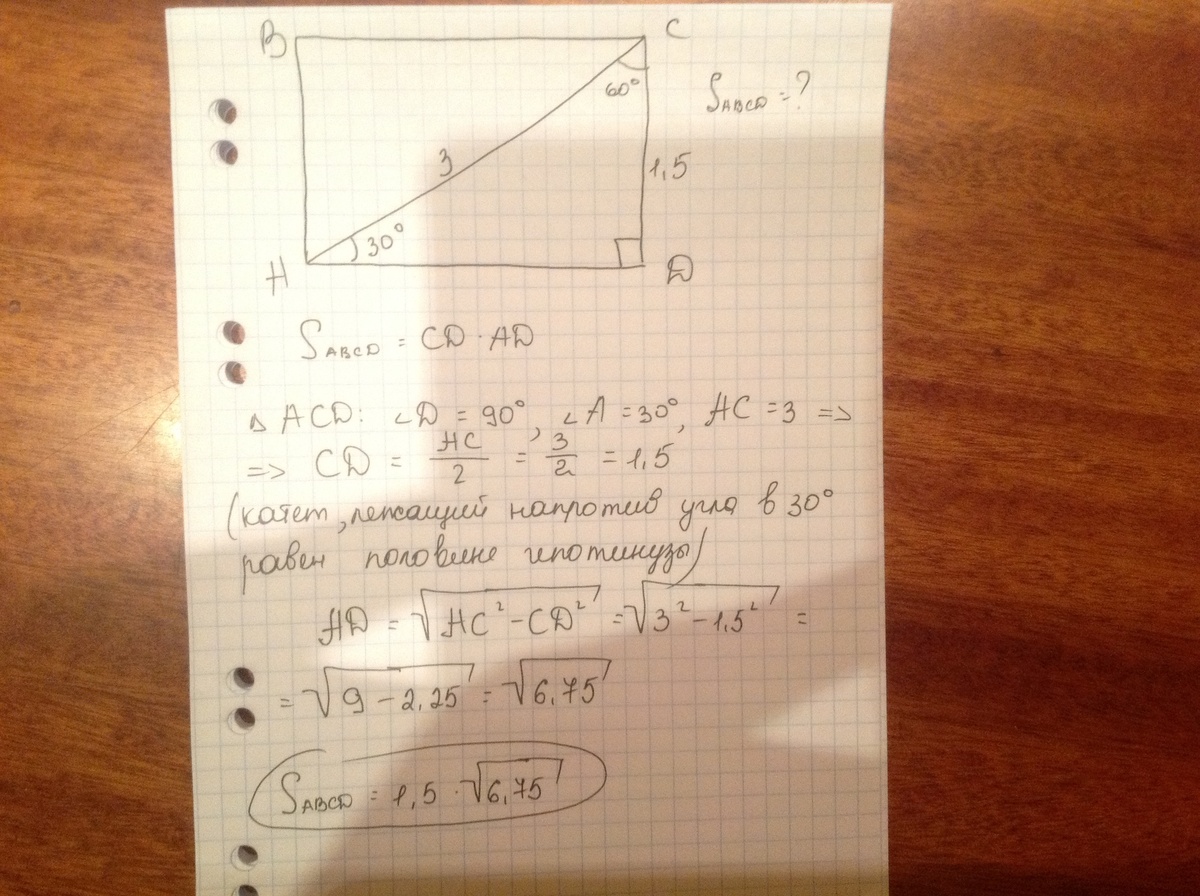 B C
60° S_ABCD = ?
3 1,5
30°
A D
S_ABCD = CD · AD
△ ACD: ∠D = 90°, ∠A = 30°, AC = 3 =>
=> CD = AC/2 = 3/2 = 1,5
(катет, лежащий напротив угла в 30°
равен половине гипотинузы)
AD = √(AC² - CD²) = √(3² - 1,5²) =
= √(9 - 2,25) = √(6,75)
S_ABCD = 1,5 · √(6,75)